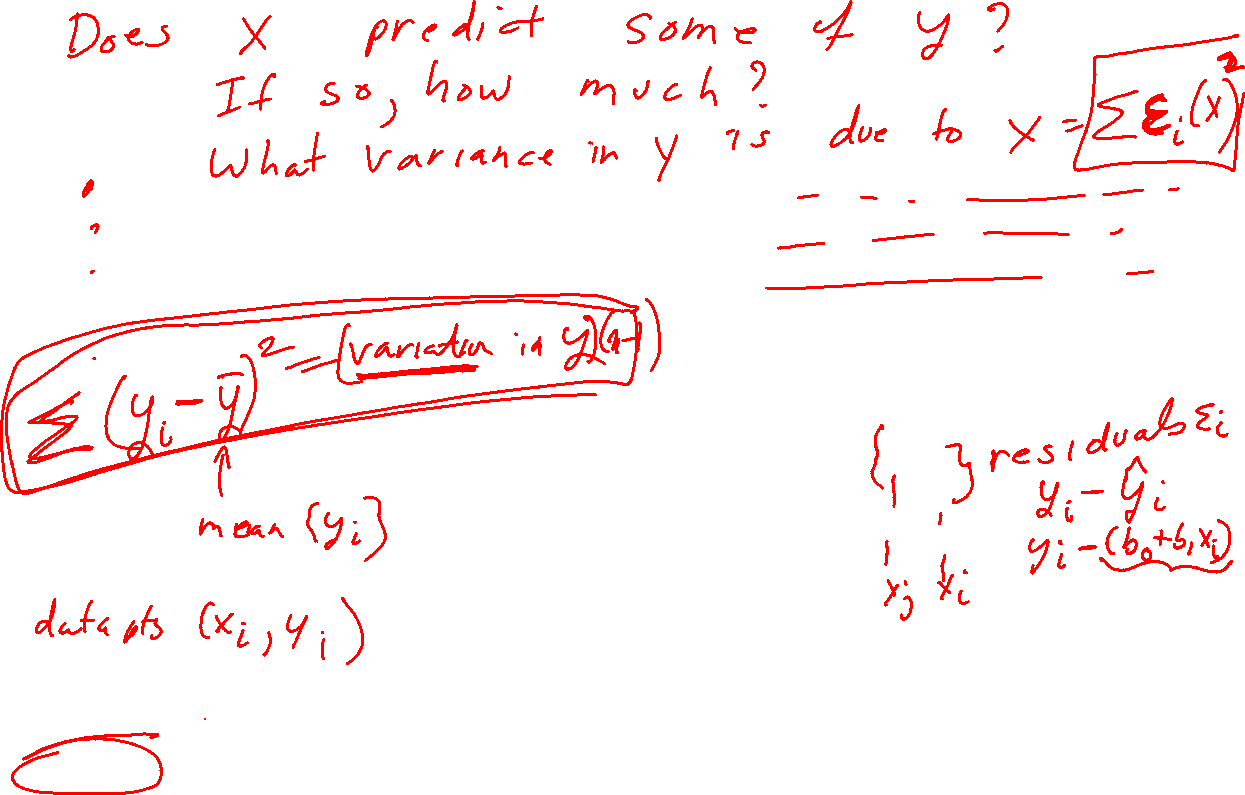 Does X predict some of y?
If so, how much?
What variance in y is due to x = ∑ε_i(x)²
∑(y_i - ȳ)² = [variation in y](n-1)
mean {y_i}
data pts (x_i, y_i)
{ } residuals ε_i
y_i - ŷ_i
y_i - (b₀ + b₁x_i)
x_j x_i